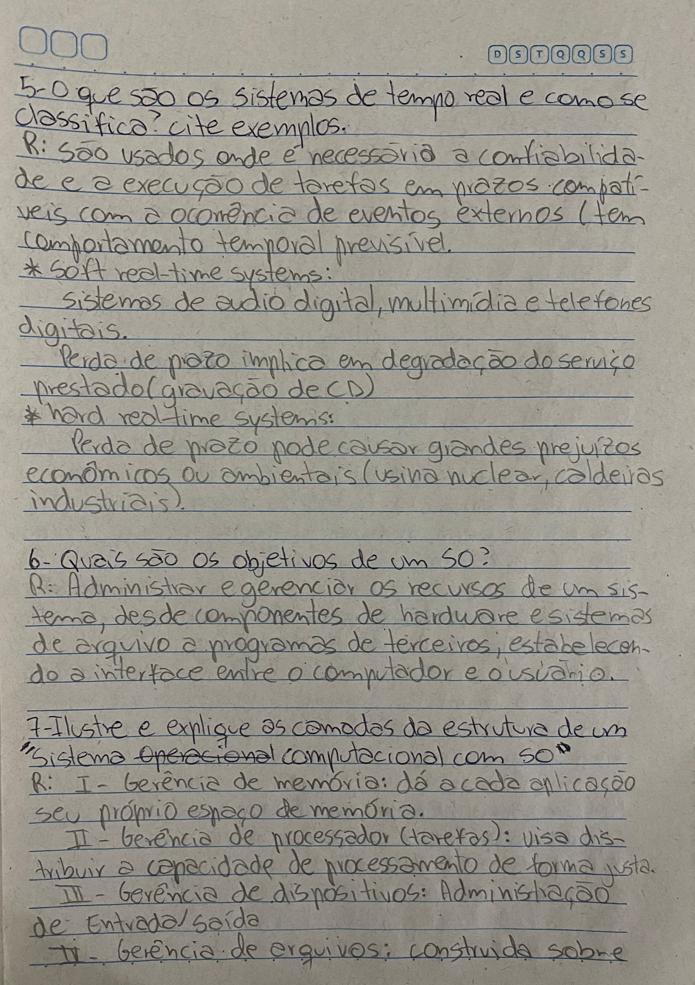 D S T Q Q S S
5-O que são os sistemas de tempo real e como se
classifica? cite exemplos.
R: São usados onde é necessário a confiabilida-
de e a execução de tarefas em prazos compatí-
veis com a ocorrência de eventos externos (tem
comportamento temporal previsível.
* Soft real-time systems:
sistemas de audio digital, multimídia e telefones
digitais.
Perda de prazo implica em degradação do serviço
prestado (gravação de CD)
* hard real-time systems:
Perda de prazo pode causar grandes prejuízos
econômicos ou ambientais (usina nuclear, caldeiras
industriais).
6- Quais são os objetivos de um SO?
R: Administrar e gerenciar os recursos de um sis-
tema, desde componentes de hardware e sistemas
de arquivo a programas de terceiros, estabelecen-
do a interface entre o computador e o usuário.
7-Ilustre e explique as camadas da estrutura de um
"Sistema Operacional computacional com SO"
R: I - Gerência de memória: dá a cada aplicação
seu próprio espaço de memória.
II - Gerência de processador (tarefas): visa dis-
tribuir a capacidade de processamento de forma justa.
III - Gerência de dispositivos: Administração
de Entrada/saída
IV - Gerência de arquivos: construida sobre